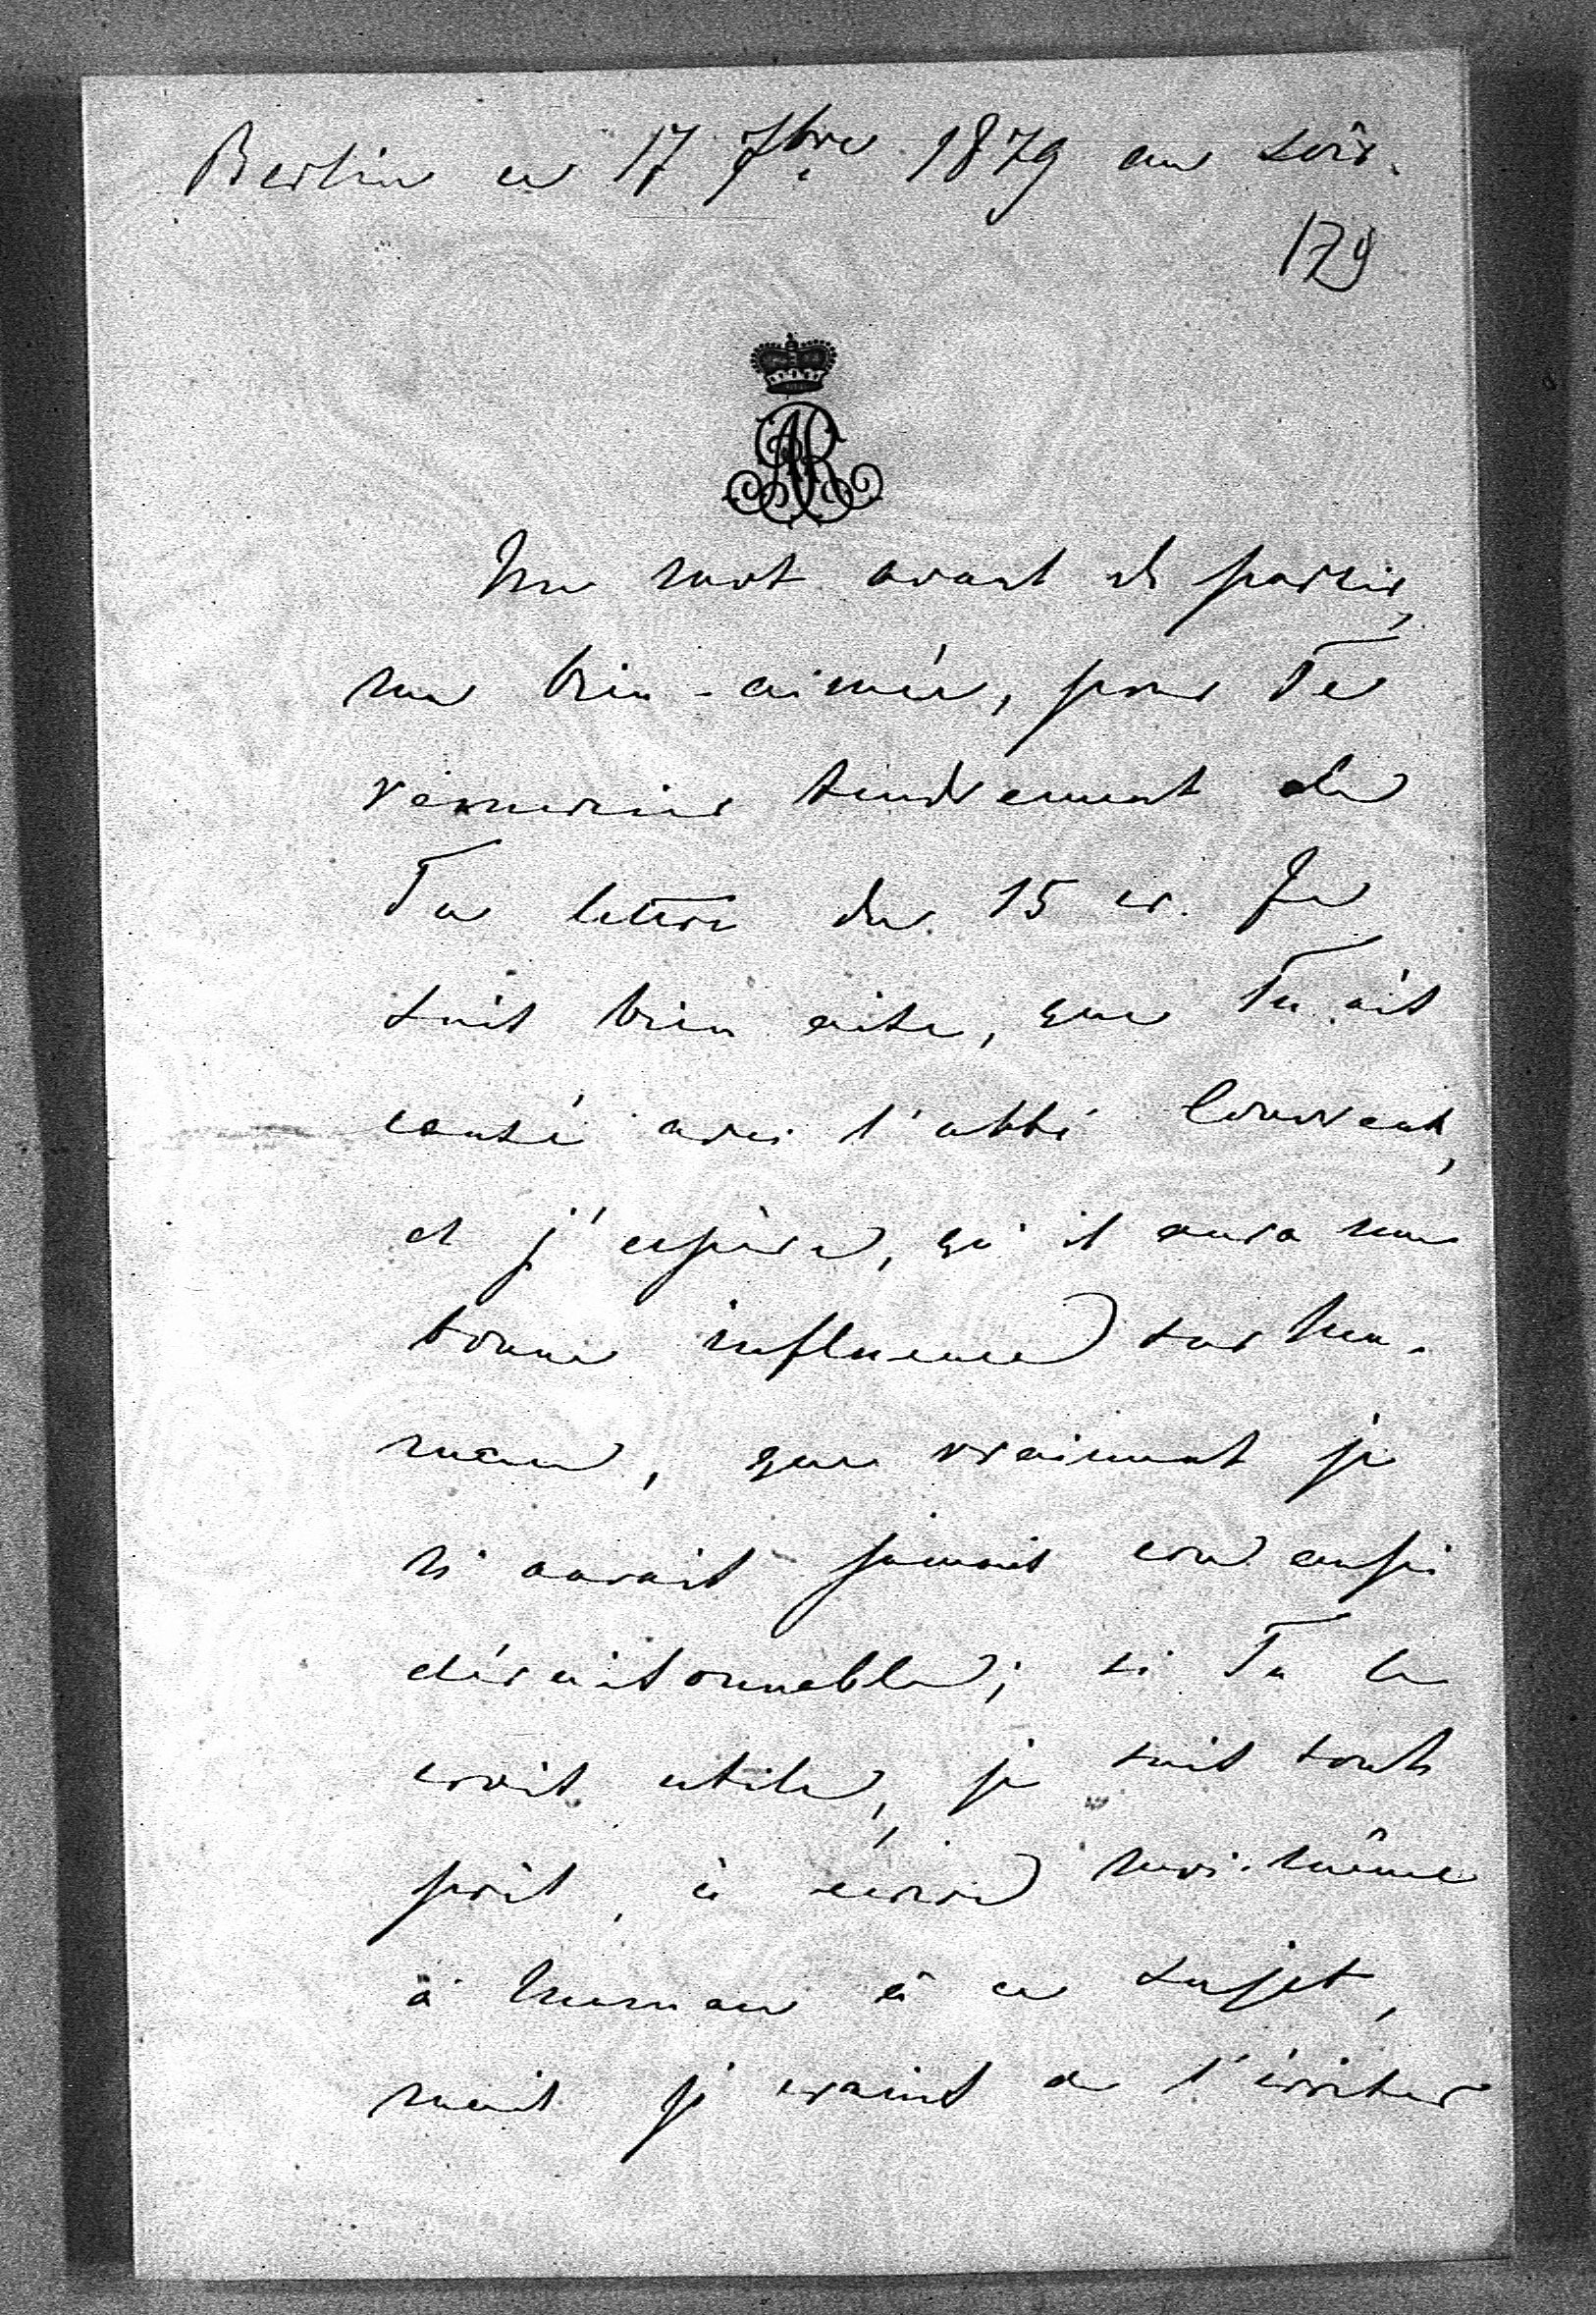 Berlin ce 17 7bre 1879 au soir.
129
AR
Un mot avant de partir,
ma bien-aimée, pour Te
remercier tendrement de
Ta lettre du 15 cr. Je
suis bien aise, que Tu ais
causé avec l'abbé
et j'espère, qu'il aura une
bonne influence sur Ma-
man, que vraiment je
n'aurais jamais cru aussi
déraisonnable; si Tu le
crois utile, je suis tout
prêt, à écrire moi-même
à Maman à ce sujet,
mais je crains de l'irriter